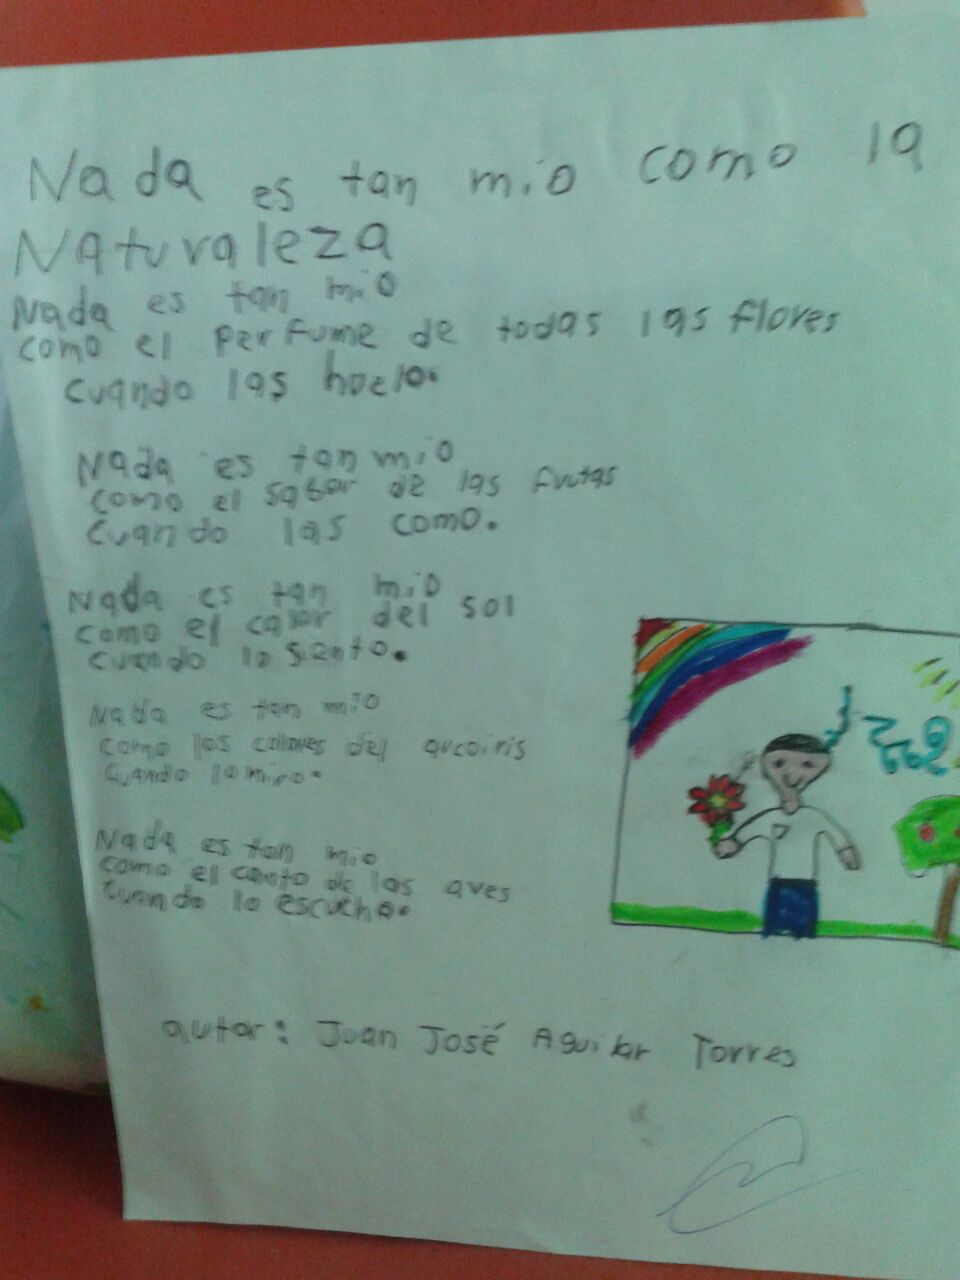 Nada es tan mio como la
Naturaleza
Nada es tan mio
como el perfume de todas las flores
cuando las huelo.
Nada es tan mio
como el sabor de las frutas
cuando las como.
Nada es tan mio
como el calor del sol
cuando lo siento.
Nada es tan mio
como los colores del arcoiris
cuando lo miro.
Nada es tan mio
como el canto de las aves
cuando lo escucho.
autor: Juan José Aguilar Torres